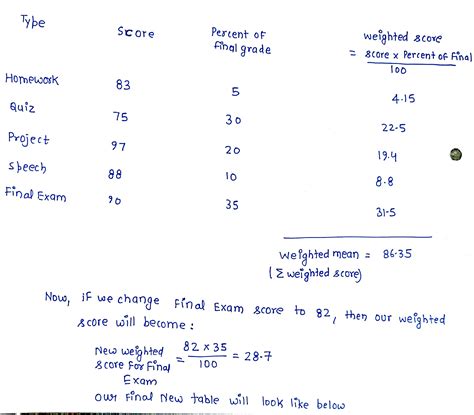 Type Score Percent of final grade weighted score = score x Percent of Final / 100
Homework 83 5 4.15
Quiz 75 30 22.5
Project 97 20 19.4
Speech 88 10 8.8
Final Exam 90 35 31.5
Weighted mean = 86.35
(Σ weighted score)
Now, if we change Final Exam score to 82, then our weighted
score will become:
New weighted score for Final Exam = 82 x 35 / 100 = 28.7
our Final New table will look like below